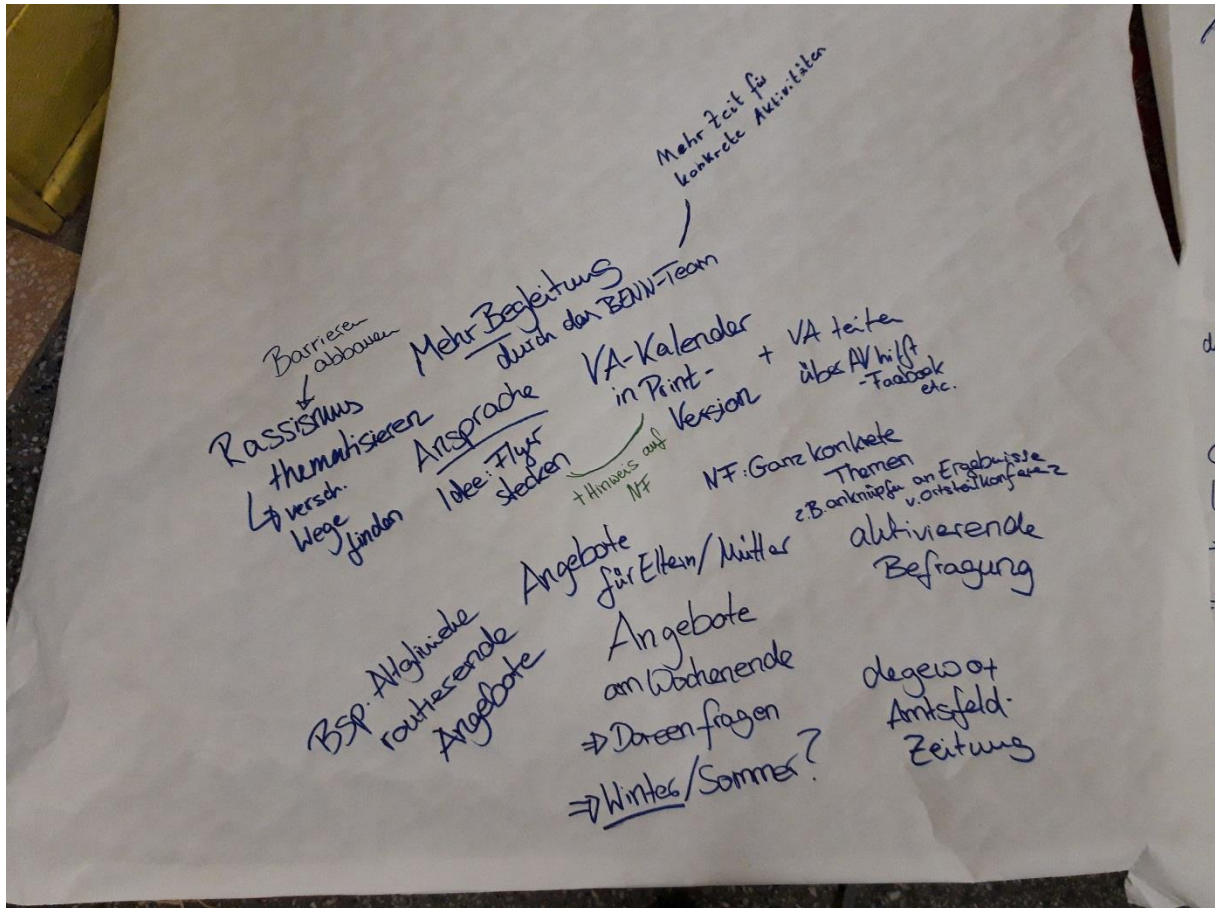 Mehr Zeit für
konkrete Aktivitäten
Mehr Begleitung
durch den BENN-Team
Barrieren
abbauen
Rassismus
thematisieren
versch.
Wege
finden
Ansprache
Idee: Flyer
stecken
+ Hinweis auf
NF
VA-Kalender
in Print-
Version
+ VA teilen
über AV hilft
-Facbook
etc.
NF: Ganz konkrete
Themen
z.B. anknüpfen an Ergebnisse
v. Ortsteilkonferenz
aktivierende
Befragung
Angebote
für Eltern/Mütter
Bsp. Altglinicke
routierende
Angebote
Angebote
am Wochenende
⇒ Doreen fragen
⇒ Winter/Sommer?
degewo +
Amtsfeld-
Zeitung